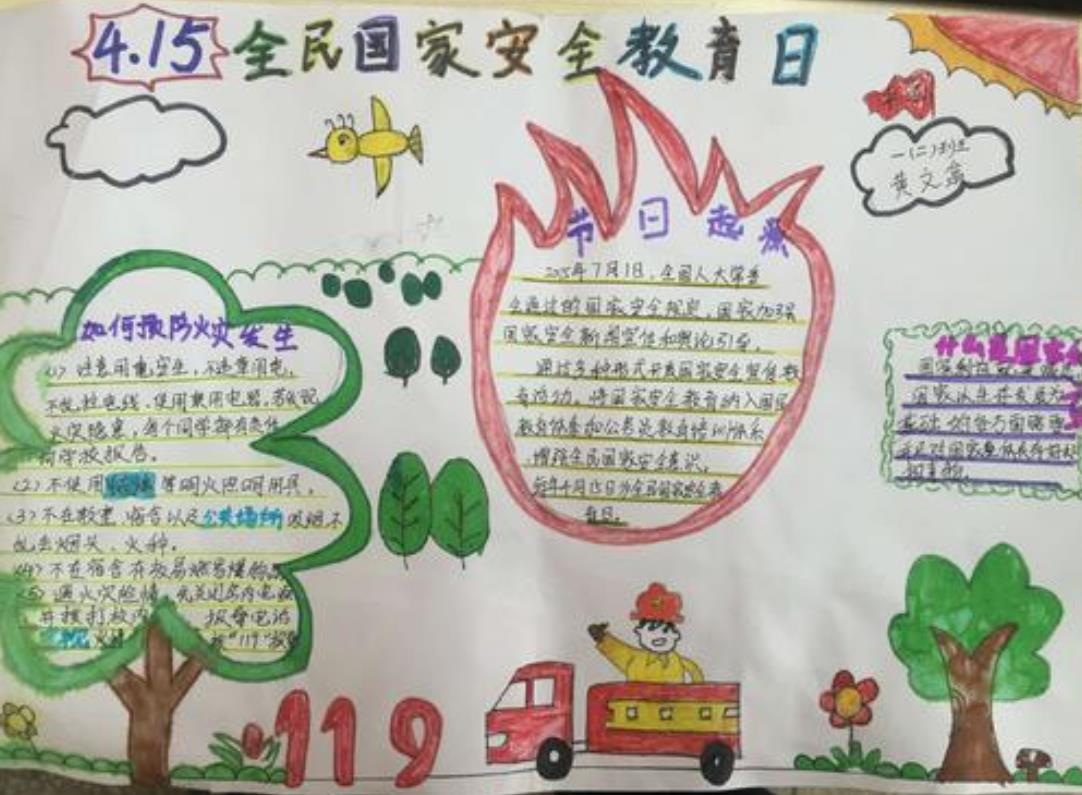 4.15全民国家安全教育日
一(二)班
黄文
节日起源
2015年7月1日,全国人大常委
会通过的国家安全规定,国家加强
国家安全新闻宣传和舆论引导,
通过多种形式开展国家安全宣传教
育活动。将国家安全教育纳入国民
教育体系和公务员教育培训体系
,增强全民国家安全意识。
每年4月15日为全民国家安全教
育日。
如何预防火灾发生
(1) 注意用电安全,不违章用电,
不乱拉电线,使用禁用电器,若发现
火灾隐患,每个同学都有责任
向学校报告。
(2) 不使用 等明火照明用具。
(3) 不在教室、宿舍以及公共场所吸烟不
乱丢烟头、火种。
(4) 不在宿舍存放易燃易爆物
(5) 遇火灾险情,先关闭房内电
并拨打校内 报警电话
火 "119"报
什么是国家
国家
119